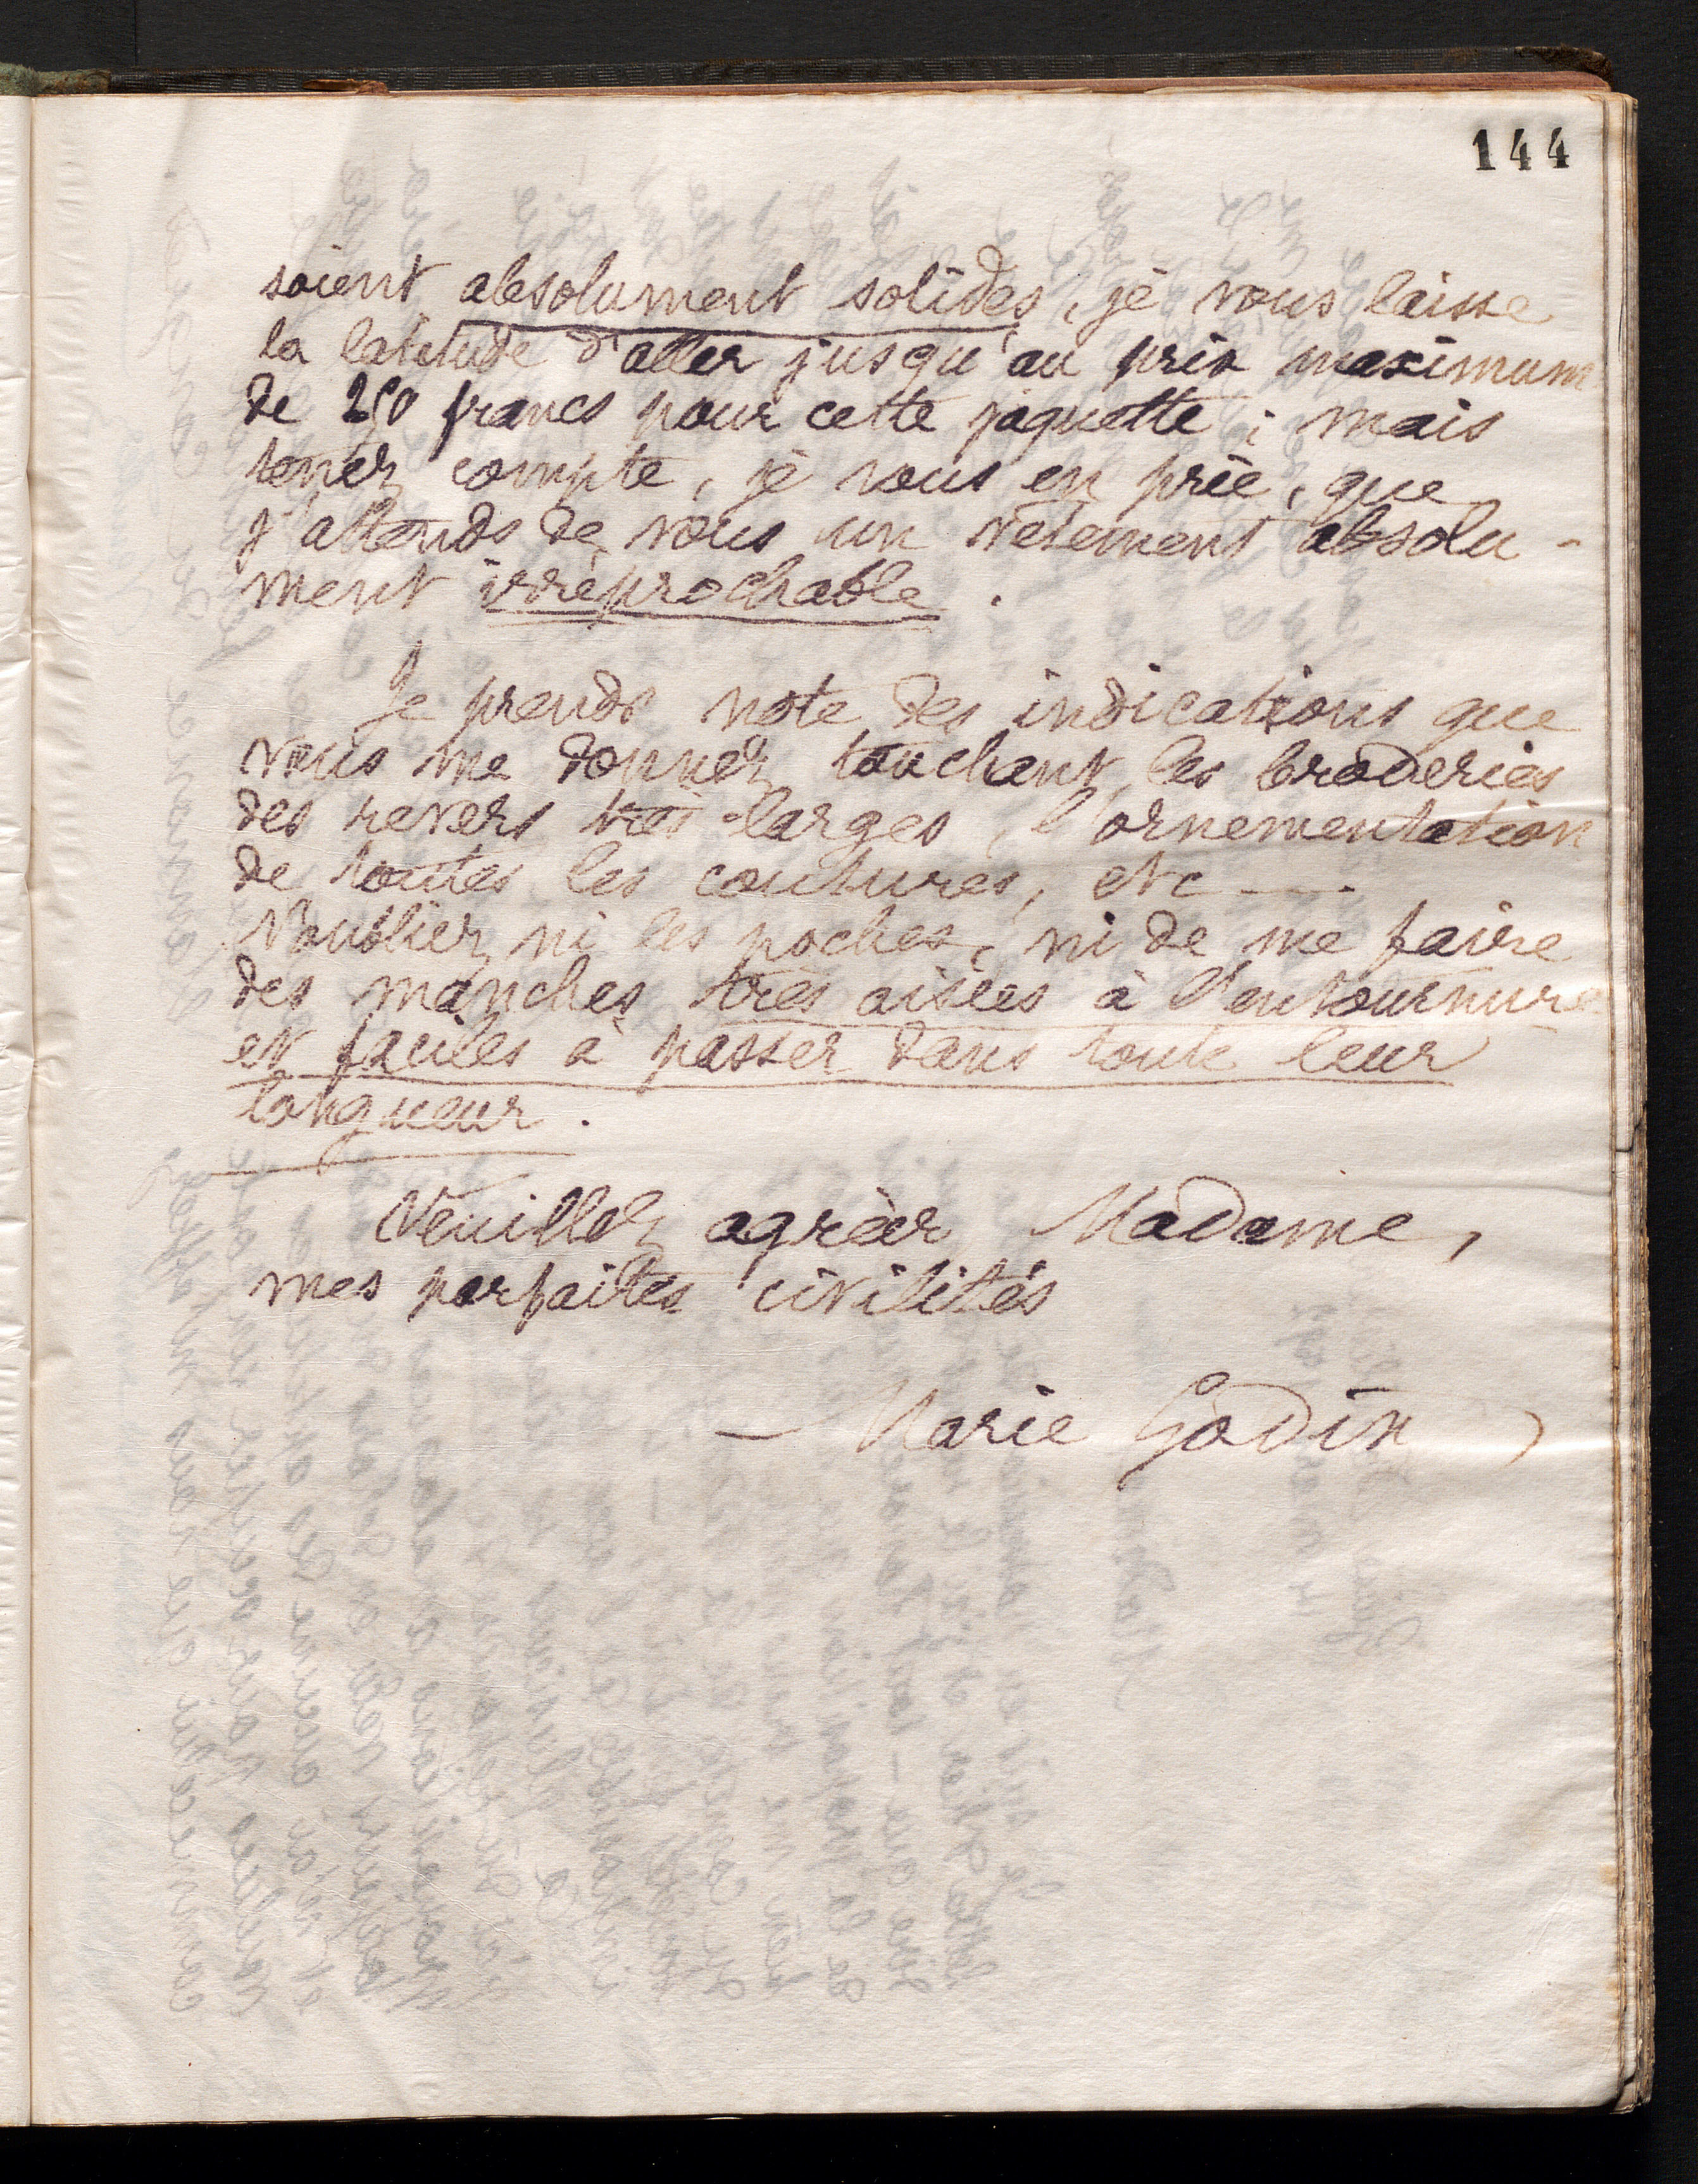 144
soient absolument solides, je vous laisse
la latitude d'aller jusqu'au prix maximum
de 250 francs pour cette jaquette ; mais
tenez compte, je vous en prie, que
j'attends de vous un vêtement absolu-
ment irréprochable.
Je prends note des indications que
vous me donnez touchant les broderies
des revers très larges, l'ornementation
de toutes les coutures, etc ---.
N'oubliez ni les poches, ni de me faire
des manches très aisées à l'entournure
et faciles à passer dans toute leur
longueur.
Veuillez agréer Madame,
mes parfaites civilités
— Marie Godin